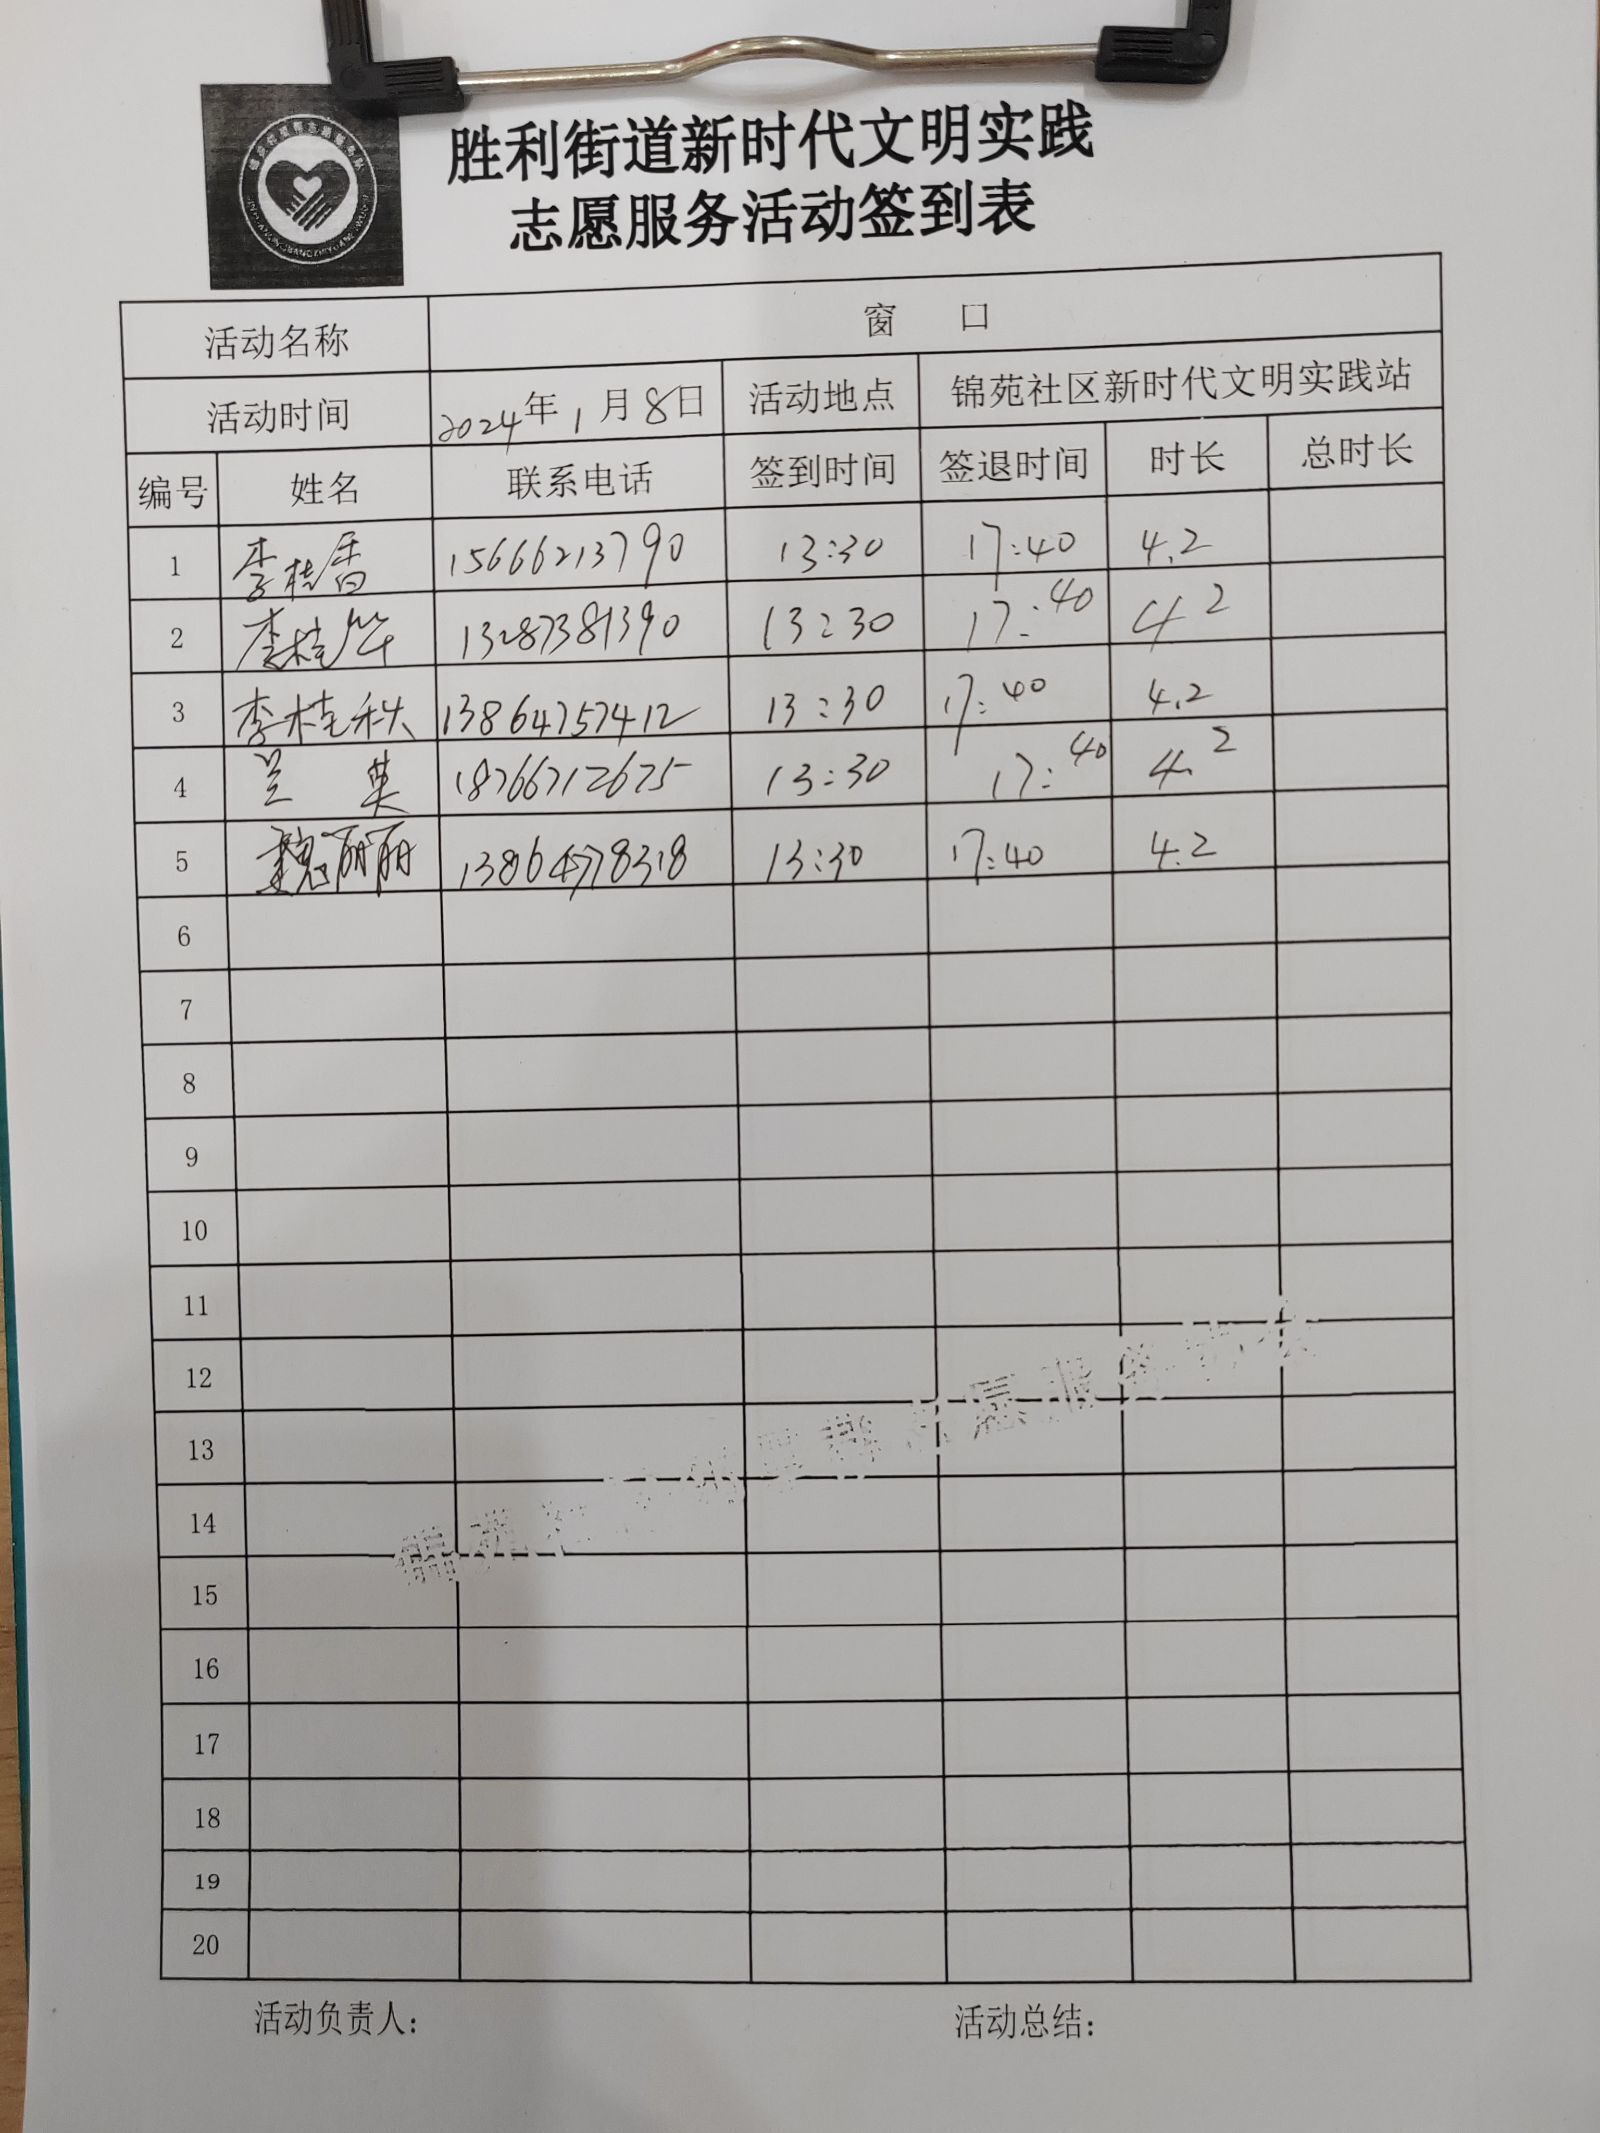 胜利街道新时代文明实践
志愿服务活动签到表
活动名称 窗 口
活动时间 2024年1月8日 活动地点 锦苑社区新时代文明实践站
编号 姓名 联系电话 签到时间 签退时间 时长 总时长
1 李桂香 15666213790 13:30 17:40 4.2
2 李桂华 13287381390 13:30 17:40 4.2
3 李桂秋 13864757412 13:30 17:40 4.2
4 兰英 18766712675 13:30 17:40 4.2
5 魏丽丽 13864778318 13:30 17:40 4.2
6
7
8
9
10
11
12
13
14
15
16
17
18
19
20
活动负责人: 活动总结: